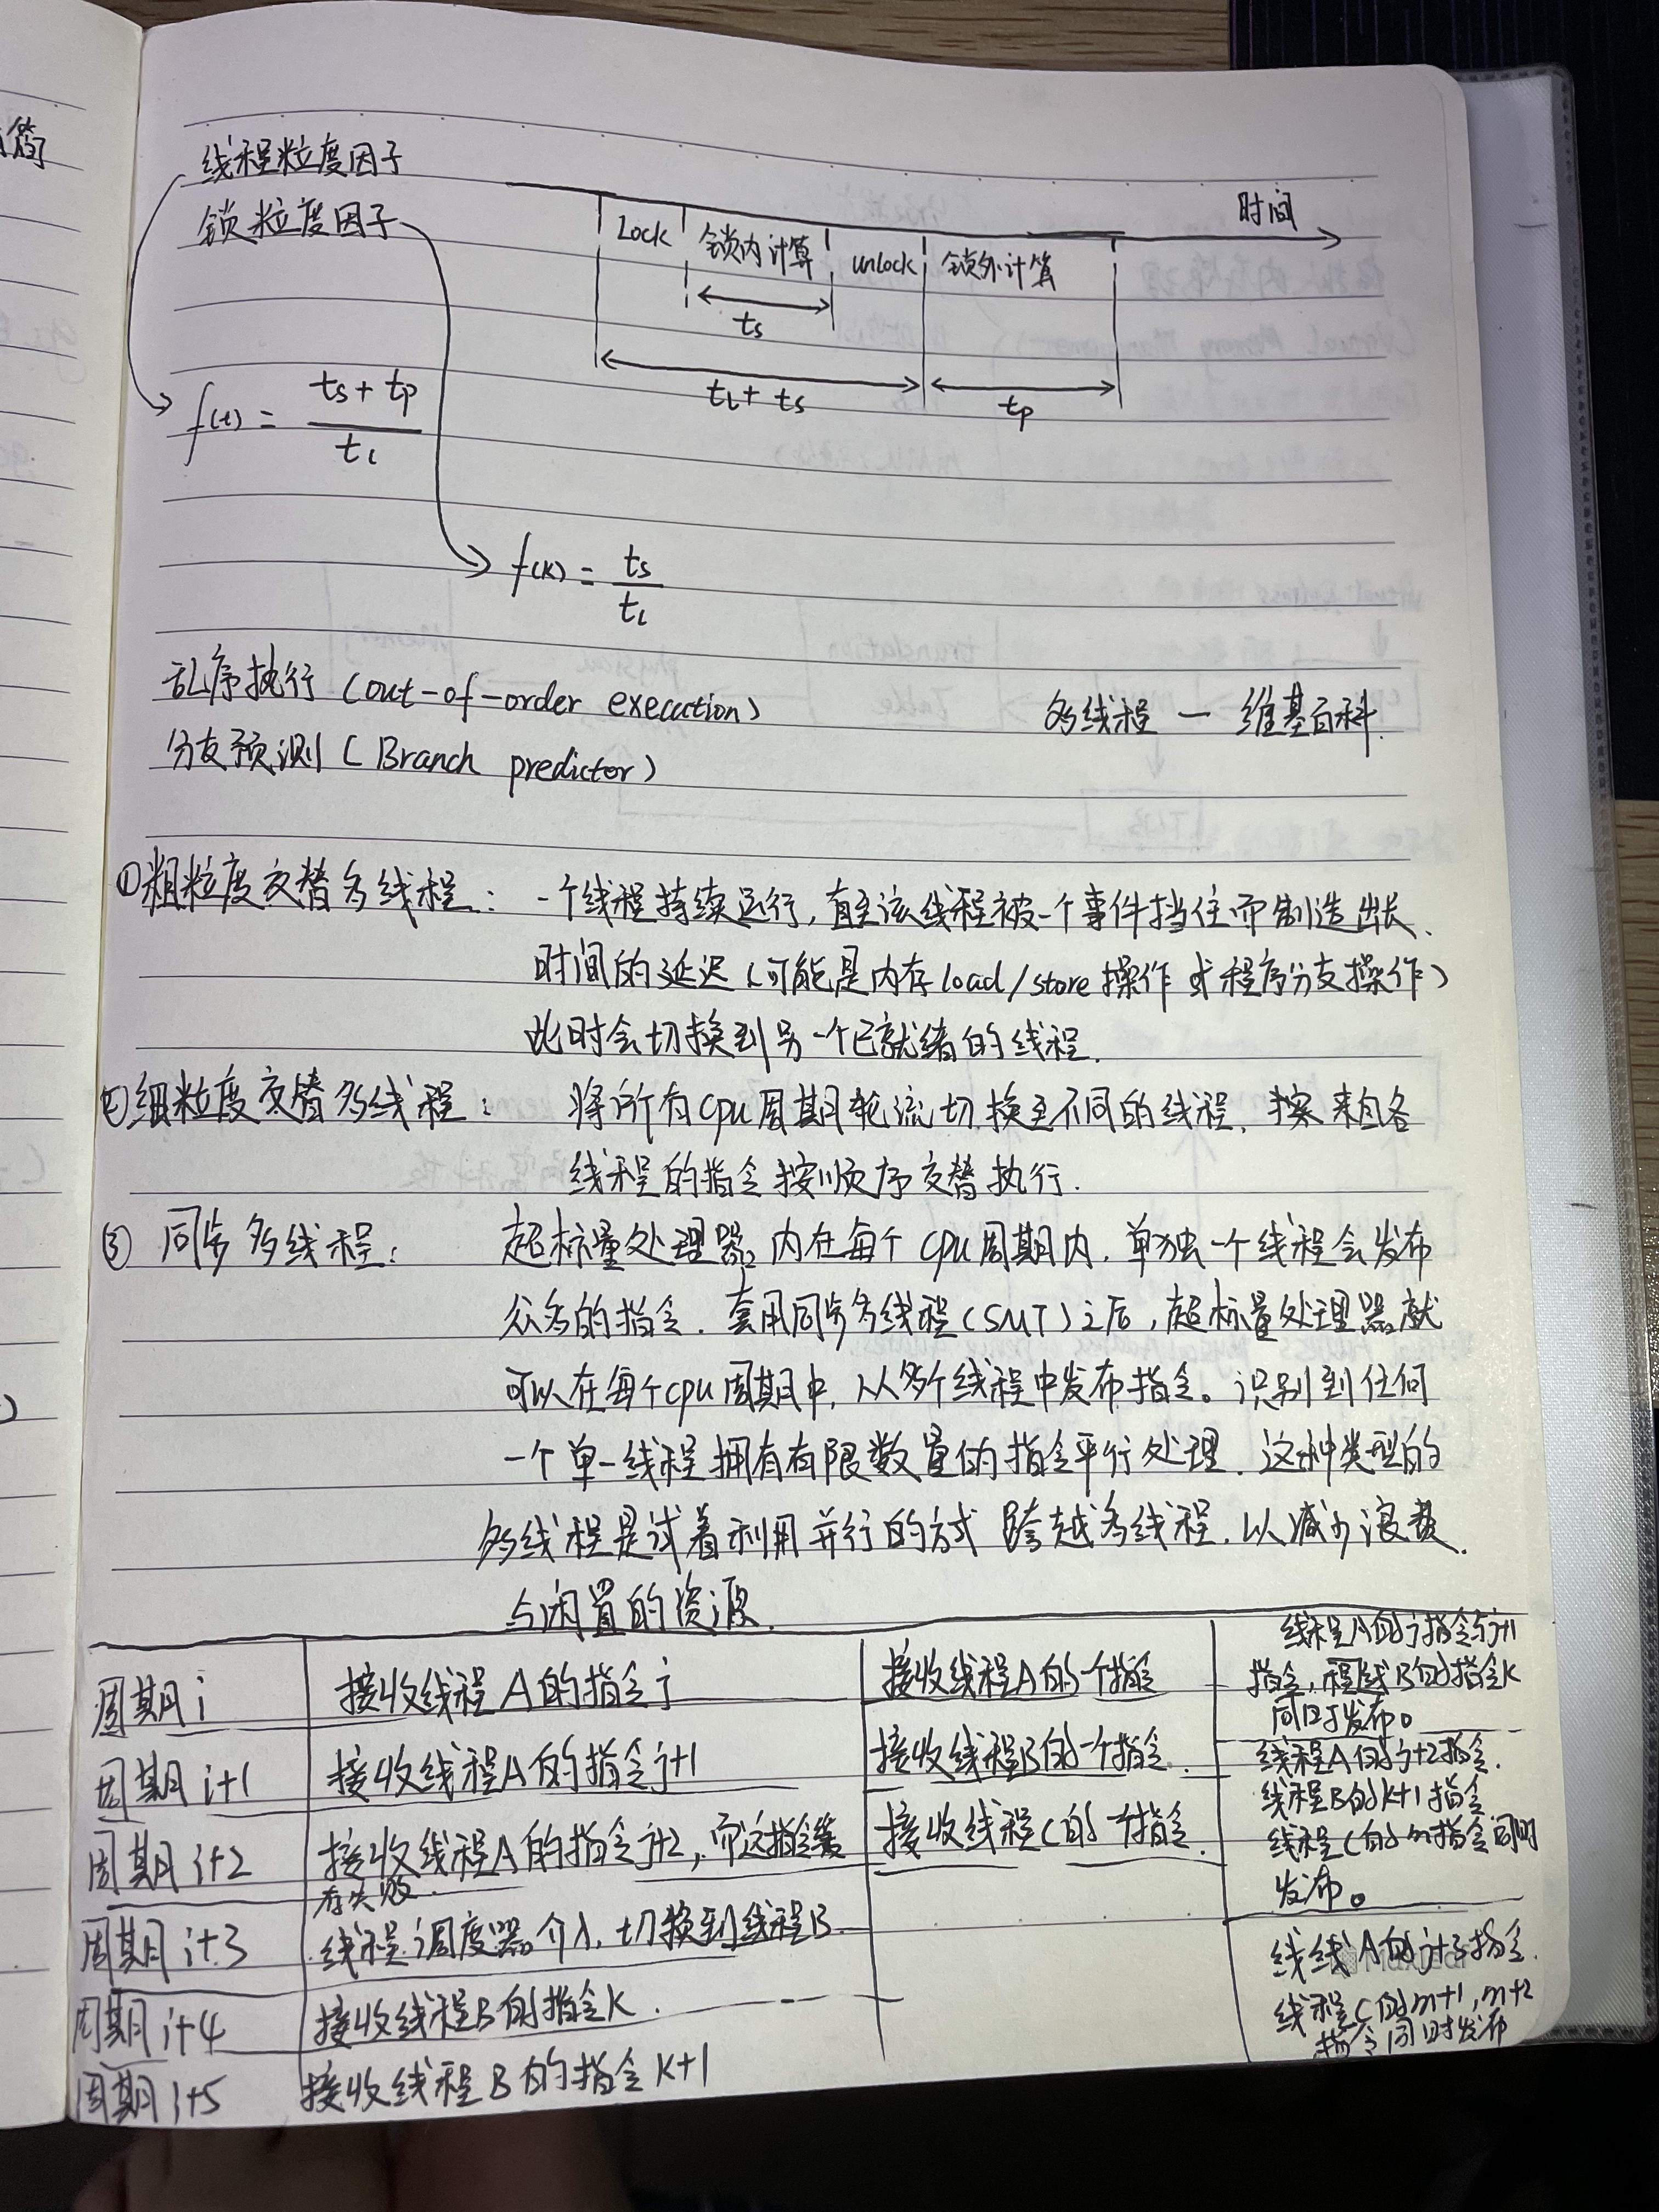 线程粒度因子
锁粒度因子
时间
Lock 锁内计算 unlock 锁外计算
ts
tL + ts
tp
f(t) = (ts + tp) / tL
f(k) = ts / tL
乱序执行 (out-of-order execution)
多线程 — 维基百科.
分支预测 (Branch predictor)
①粗粒度交替多线程: 一个线程持续运行, 直至该线程被一个事件挡住而制造出长
时间的延迟 (可能是内存load/store操作 或 程序分支操作)
此时会切换到另一个已就绪的线程.
②细粒度交替多线程: 将所有cpu周期轮流切换至不同的线程, 来自各
线程的指令按顺序交替执行.
③ 同步多线程: 超标量处理器内在每个cpu周期内, 单独一个线程会发布
众多的指令. 套用同步多线程(SMT)之后, 超标量处理器就
可以在每个cpu周期中, 从多个线程中发布指令。识别到任何
一个单一线程拥有有限数量的指令平行处理. 这种类型的
多线程是试着利用并行的方式 跨越多线程, 以减少浪费
与闲置的资源.
周期 i 接收线程A的指令j 接收线程A的一个指令
线程A的j指令与j+1
指令, 程线B的指令K
同时发布。
周期 i+1 接收线程A的指令j+1 接收线程B的一个指令.
线程A的j+2指令.
线程B的k+1指令
线程C的m指令同时
发布。
周期 i+2 接收线程A的指令j+2, 而这指令缓
存失败. 接收线程C的一个指令.
周期 i+3 线程调度器介入, 切换到线程B.
线线A的j+3指令.
线程C的m+1, m+2
指令同时发布
周期 i+4 接收线程B的指令K.
周期 i+5 接收线程B的指令K+1